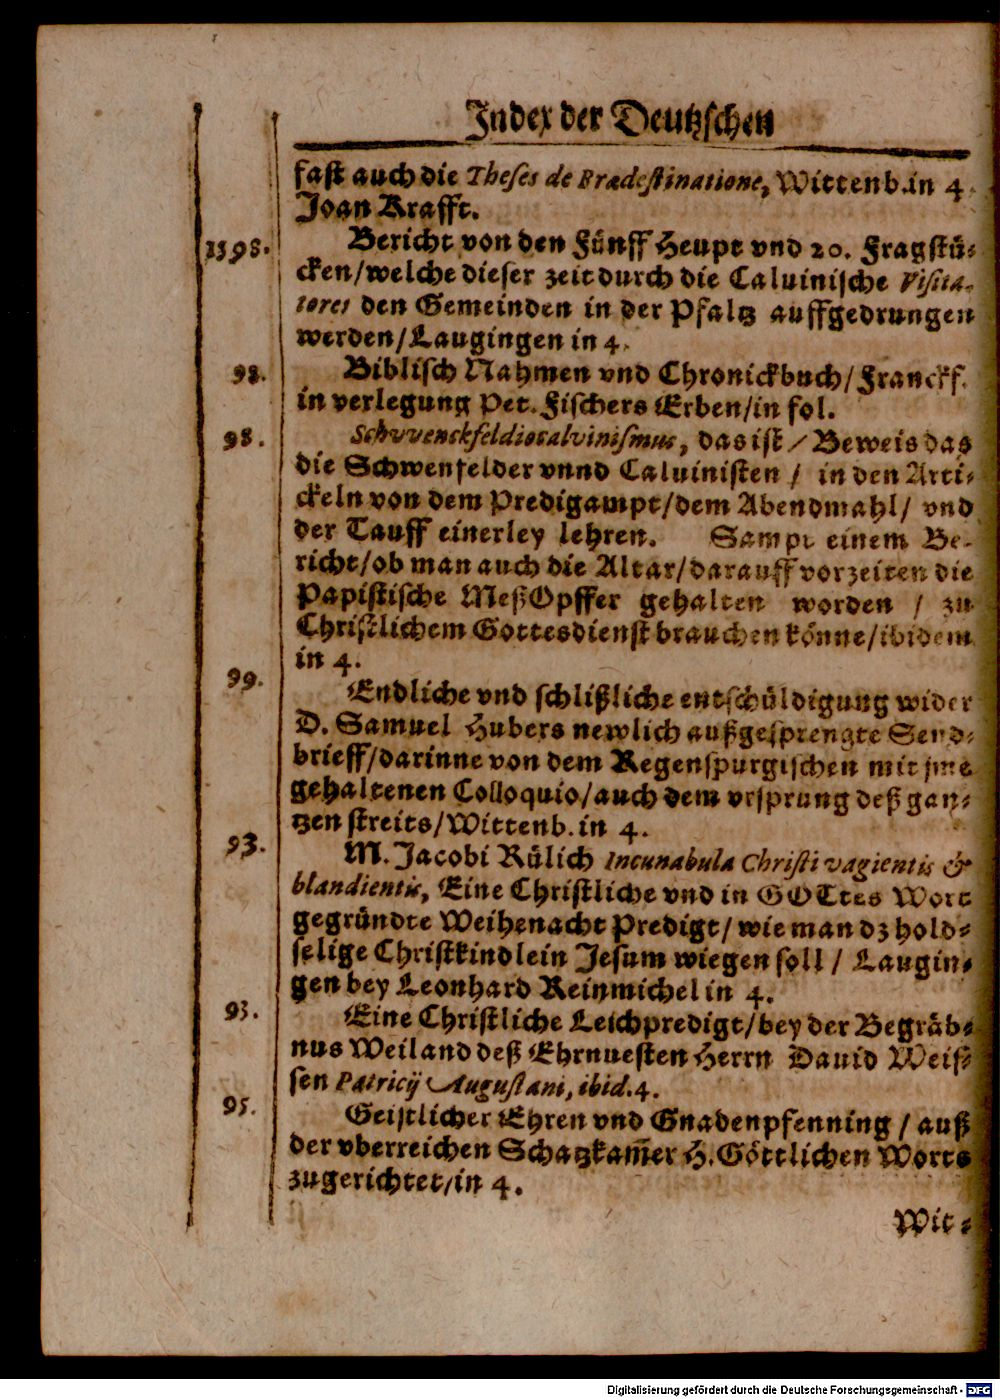 Index der Deutzschen
fast auch die Theses de Prædestinatione, Wittenb.in 4.
Joan Krafft.
1598. Bericht von den Fünff Heupt vnd 20. Fragstü-
cken/welche dieser zeit durch die Caluinische Visita-
tores den Gemeinden in der Pfaltz auffgedrungen
werden/Laugingen in 4.
98. Biblisch Nahmen vnd Chronickbuch/Franckf.
in verlegung Pet. Fischers Erben/in fol.
98. Schvvenckfeldiocalvinismus, das ist/Beweis das
die Schwenfelder vnnd Caluinisten / in den Arti-
ckeln von dem Predigampt/dem Abendmahl/ vnd
der Tauff einerley lehren. Sampt einem Be-
richt/ob man auch die Altar/darauff vorzeiten die
Papistische MeßOpffer gehalten worden / zu
Christlichem Gottesdienst brauchen könne/ibidem
in 4.
99. Endliche vnd schlißliche entschüldigung wider
D. Samuel Hubers newlich außgesprengte Send-
brieff/darinne von dem Regenspurgischen mit jme
gehaltenen Colloquio/auch dem vrsprung deß gan-
tzen streits/Wittenb.in 4.
93. M. Jacobi Rülich Incunabula Christi vagientis &
blandientis, Eine Christliche vnd in GOTtes Wort
gegründte Weihenacht Predigt/wie man dz hold-
selige Christkindlein Jesum wiegen soll / Laugin-
gen bey Leonhard Reinmichel in 4.
93. Eine Christliche Leichpredigt/bey der Begräb-
nus Weiland deß Ehrnuesten Herrn Dauid Weis-
sen Patricij Augustani, ibid.4.
95. Geistlicher Ehren vnd Gnadenpfenning / auß
der vberreichen Schatzkam̄er H.Göttlichen Worts
zugerichtet/in 4.
Wit-
Digitalisierung gefördert durch die Deutsche Forschungsgemeinschaft - DFG